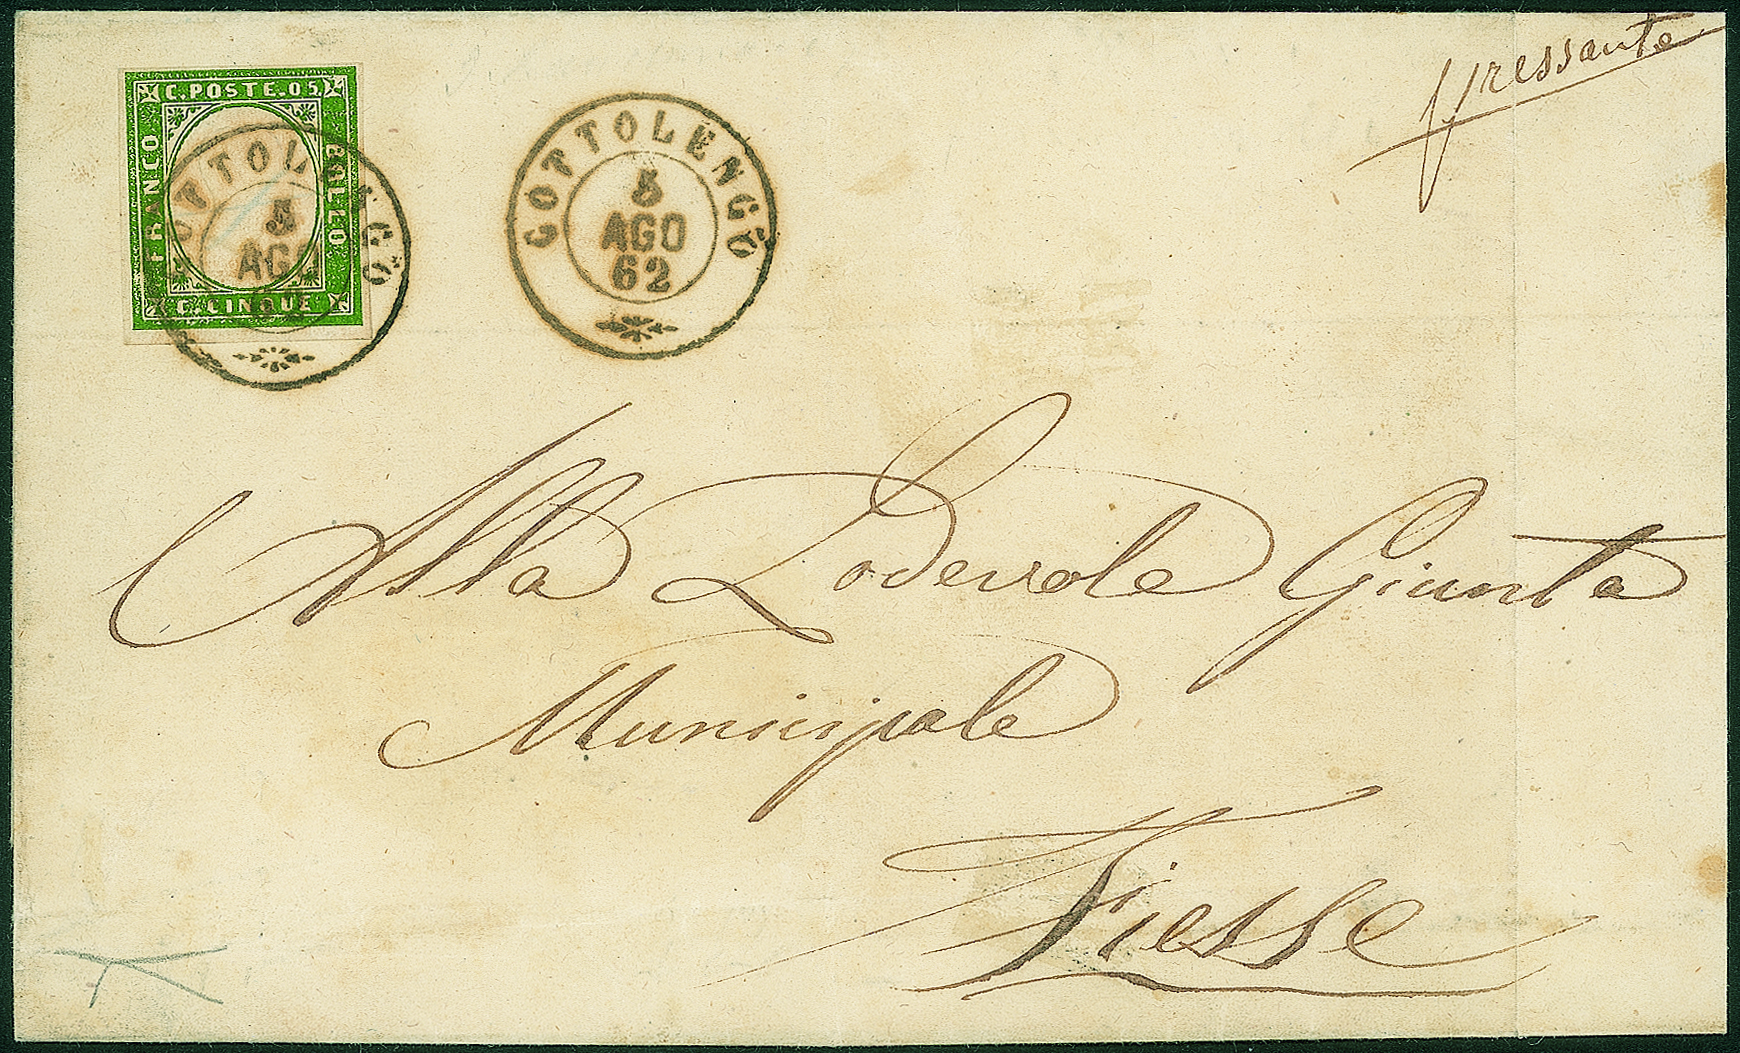 pressante
C. POSTE. 05
FRANCO
BOLLO
C. CINQUE
GOTTOLENGO
5
AGO
GOTTOLENGO
5
AGO
62
Alla Lodevole Giunta
Municipale
Fiesse